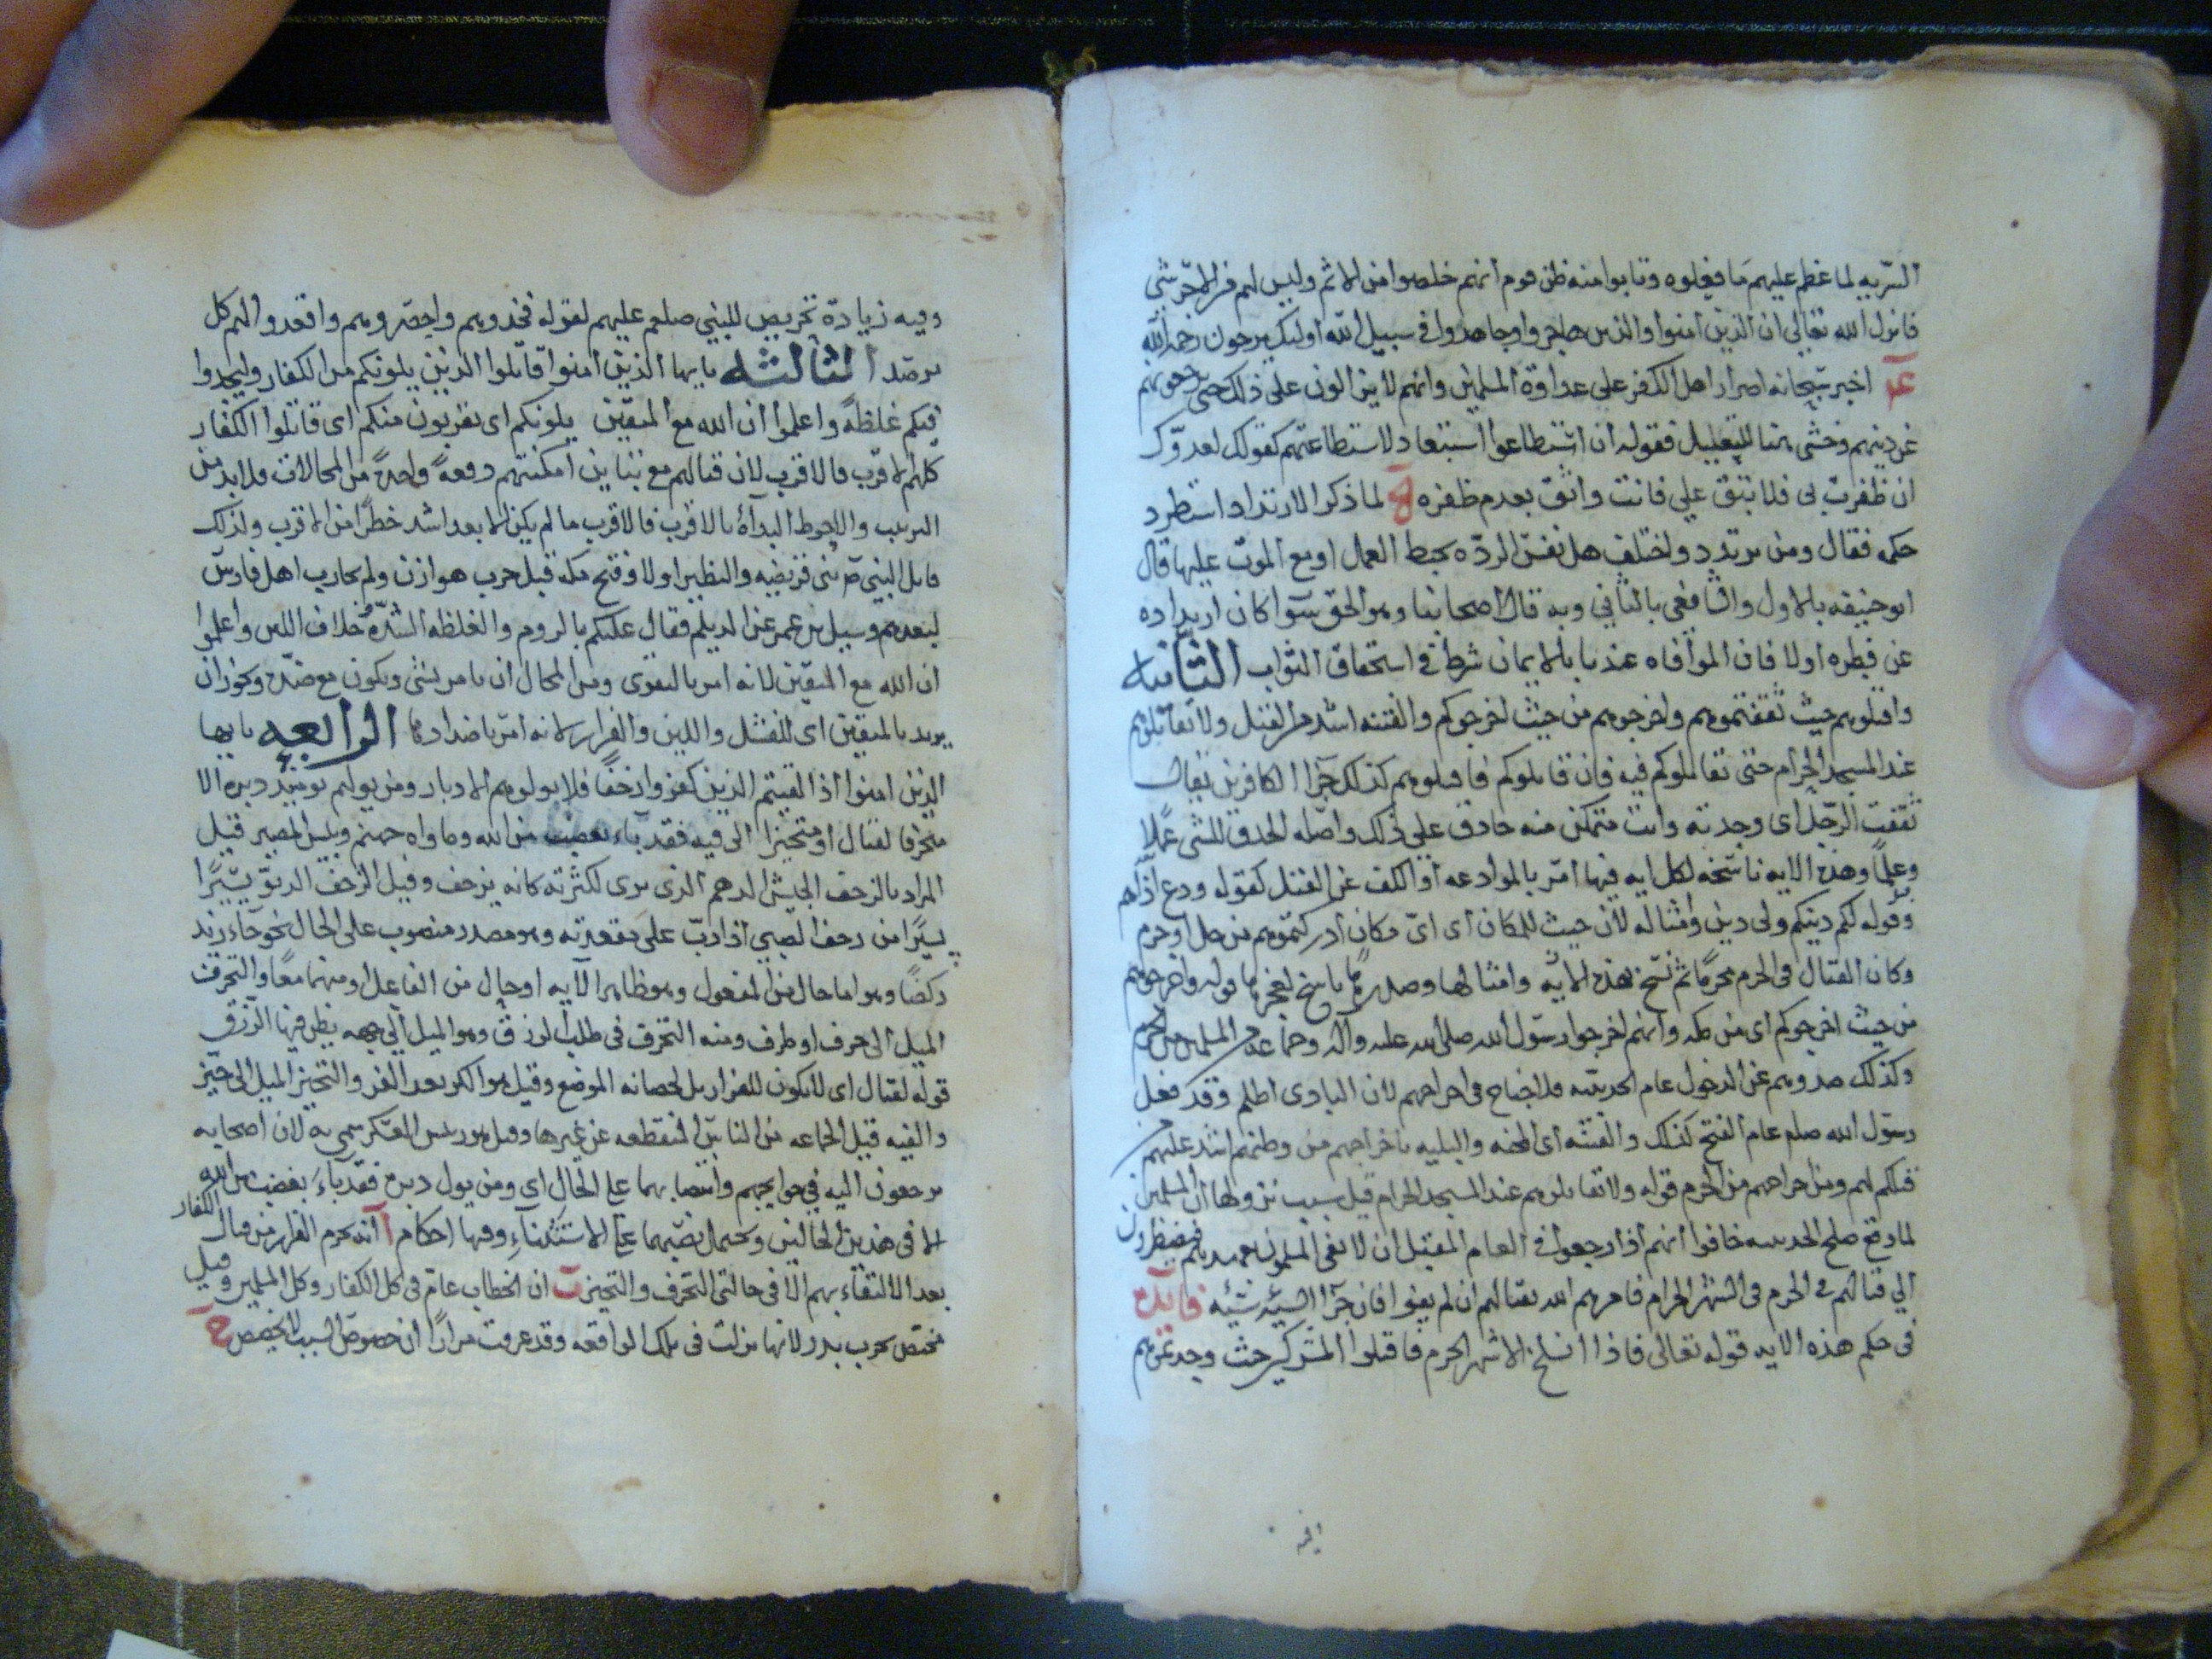 السريه لما عظم عليهم ما فعلوه وتابوا منه ظن قوم انهم خلصوا من الاثم وليس لهم من الاجر شى
فانزل الله تعالى ان الذين امنوا والذين هاجروا وجاهدوا فى سبيل الله اولئك يرجون رحمه الله
اخبر سبحانه اصرار اهل الكفر على عداوة المسلمين وانهم لا يزالون على ذلك حتى يرجعونهم
عن دينهم وحتى هنا للتعليل فقوله ان استطاعوا استبعاد لاستطاعتهم كقولك لعدوك
ان ظفرت بى فلا تبق على فانت واثق بعدم ظفره لما ذكر الارتداد استطرد
حكمه فقال ومن يرتدد واختلف هل نفس الرده يحبط العمل او مع الموت عليها قال
ابو حنيفه بالاول والشافعى بالثانى وبه قال اصحابنا وهو الحق سوا كان ارتداده
عن فطره اولا فان الموافاه عندنا بالايمان شرط فى استحقاق الثواب الثانيه
واقتلوهم حيث ثقفتموهم واخرجوهم من حيث اخرجوكم والفتنه اشد من القتل ولا تقاتلوهم
عند المسجد الحرام حتى تقاتلوكم فيه فان قاتلوكم فاقتلوهم كذلك جزا الكافرين يقال
ثقفت الرجل اى وجدته وانت متمكن منه حاذق على ذلك واصله الحذق للشى عملا
وعلما وهذه الايه ناسخه لكل ايه فيها امر بالموادعه او الكف عن القتل كقوله ودع اذاهم
وقوله لكم دينكم ولى دين وامثاله لان حيث للمكان اى اى مكان ادركتموهم من حل او حرم
وكان القتال فى الحرم محرما ثم نسخ بهذه الايه وامثالها وصدرها ناسخ لعجزها قوله واخرجوهم
من حيث اخرجوكم اى من مكه وانهم اخرجوا رسول الله صلى الله عليه واله وجماعه من المسلمين من الحرم
وكذلك صدوهم عن الدخول عام الحديبيه فلا جناح فى اخراجهم لان البادى اظلم وقد فعل
رسول الله صلعم عام الفتح كذلك والفتنه اى المحنه والبليه باخراجهم من وطنهم اشد عليهم من
قتلكم لهم ومن اخراجهم من الحرم قوله ولا تقاتلوهم عند المسجد الحرام قيل سبب نزولها ان المسلمين
لما وقع صلح الحديبيه خافوا انهم اذا رجعوا فى العام المقبل ان لا تفى المسلمون بعهدهم فيضطرون
الى قتالهم فى الحرم فى الشهر الحرام فامرهم الله بقتالهم ان لم يفوا فان جزا السيئه سيئه فايده
فى حكم هذه الايه قوله تعالى فاذا انسلخ الاشهر الحرم فاقتلوا المشركين حيث وجدتموهم
وفيه زيادة تحريص للنبى صلعم عليهم لقوله فخذوهم واحصروهم واقعدوا لهم كل
مرصد الثالثه يايها الذين امنوا قاتلوا الذين يلونكم من الكفار وليجدوا
فيكم غلظة واعلموا ان الله مع المتقين يلونكم اى تقربون منكم اى قاتلوا الكفار
كلهم الاقرب فالاقرب لان قتالهم مع تباين امكنتهم دفعة واحدة من المحالات فلا بد من
الترتيب والاحوط البداة بالاقرب فالاقرب ما لم يكن الابعد اشد خطرا من الاقرب ولذلك
قاتل النبى ص بنى قريضه والنظير اولا وفتح مكه قبل حرب هوازن ولم يحارب اهل فارس
لبعدهم وسيل بن عمر عن الديلم فقال عليكم بالروم والغلظه الشده خلاف اللين واعلموا
ان الله مع المتقين لانه امر بالتقوى ومن المحال ان يامر بشى ويكون مع ضده ويجوز ان
يريد بالمتقين اى للفشل واللين والفرار لانه امر باضدادها الرابعه يايها
الذين امنوا اذا لقيتم الذين كفروا زحفا فلا تولوهم الادبار ومن يولهم يومئذ دبره الا
متحرفا لقتال او متحيزا الى فيه فقد باء بغضب من الله وماواه جهنم وبئس المصير قيل
المراد بالزحف الجيش الدهم الذى يرى لكثرته كانه يزحف وقيل الزحف الدبيب يسيرا
يسيرا من زحف الصبى اذا دب على مقعدته وهو مصدر منصوب على الحال نحو جاء زيد
ركضا وهو اما حال من المفعول وهو ظاهر الايه او حال من الفاعل او منهما معا والتحرف
الميل الى حرف او طرف ومنه التحرف فى طلب الرزق وهو الميل الى جهه يظن فيها الرزق
قوله لقتال اى لا يكون للفرار بل لحصانه الموضع وقيل هو الكر بعد الفر والتحيز الميل الى حيز
والفيه قيل الجماعه من الناس المنقطعه عن غيرها وقيل هو رئيس العسكر سمى به لان اصحابه
يرجعون اليه فى حوايجهم وانتصابهما على الحال اى ومن يول دبره فقد باء بغضب من الله
الا فى هذين الحالين ويحتمل نصبهما على الاستثناء وفيها احكام ا انه يحرم الفرار من قتال الكفار
بعد الالتقاء بهم الا فى حالتى التحرف والتحيز ب ان الخطاب عام فى كل الكفار وكل المسلمين وقيل
مختص بحرب بدر لانها نزلت فى تلك الواقعه وقد عرفت مرارا ان خصوص السبب لا يخصص ج